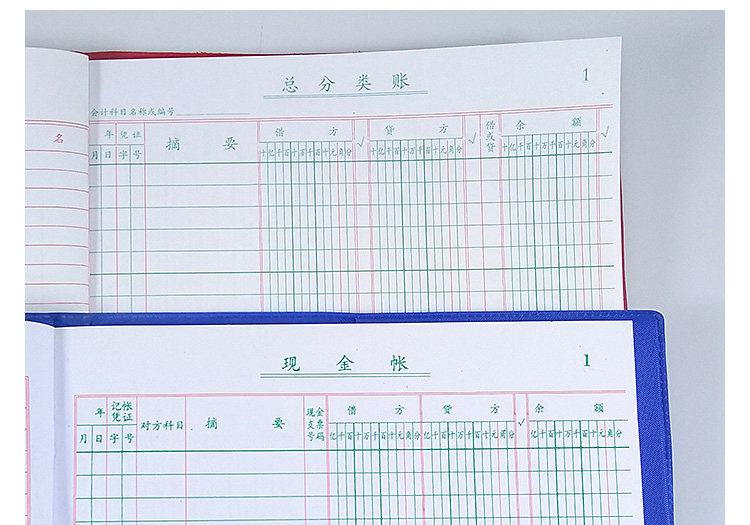 总分类账
1
会计科目名称或编号
名
年 凭证 摘要 借方 √ 贷方 √ 借或贷 余额 √
月 日 字 号 十亿千百十万千百十元角分 十亿千百十万千百十元角分 十亿千百十万千百十元角分
现金帐
1
年 记帐凭证 对方科目 摘要 现金支票号码 借方 贷方 √ 余额
月 日 字 号 亿千百十万千百十元角分 亿千百十万千百十元角分 亿千百十万千百十元角分